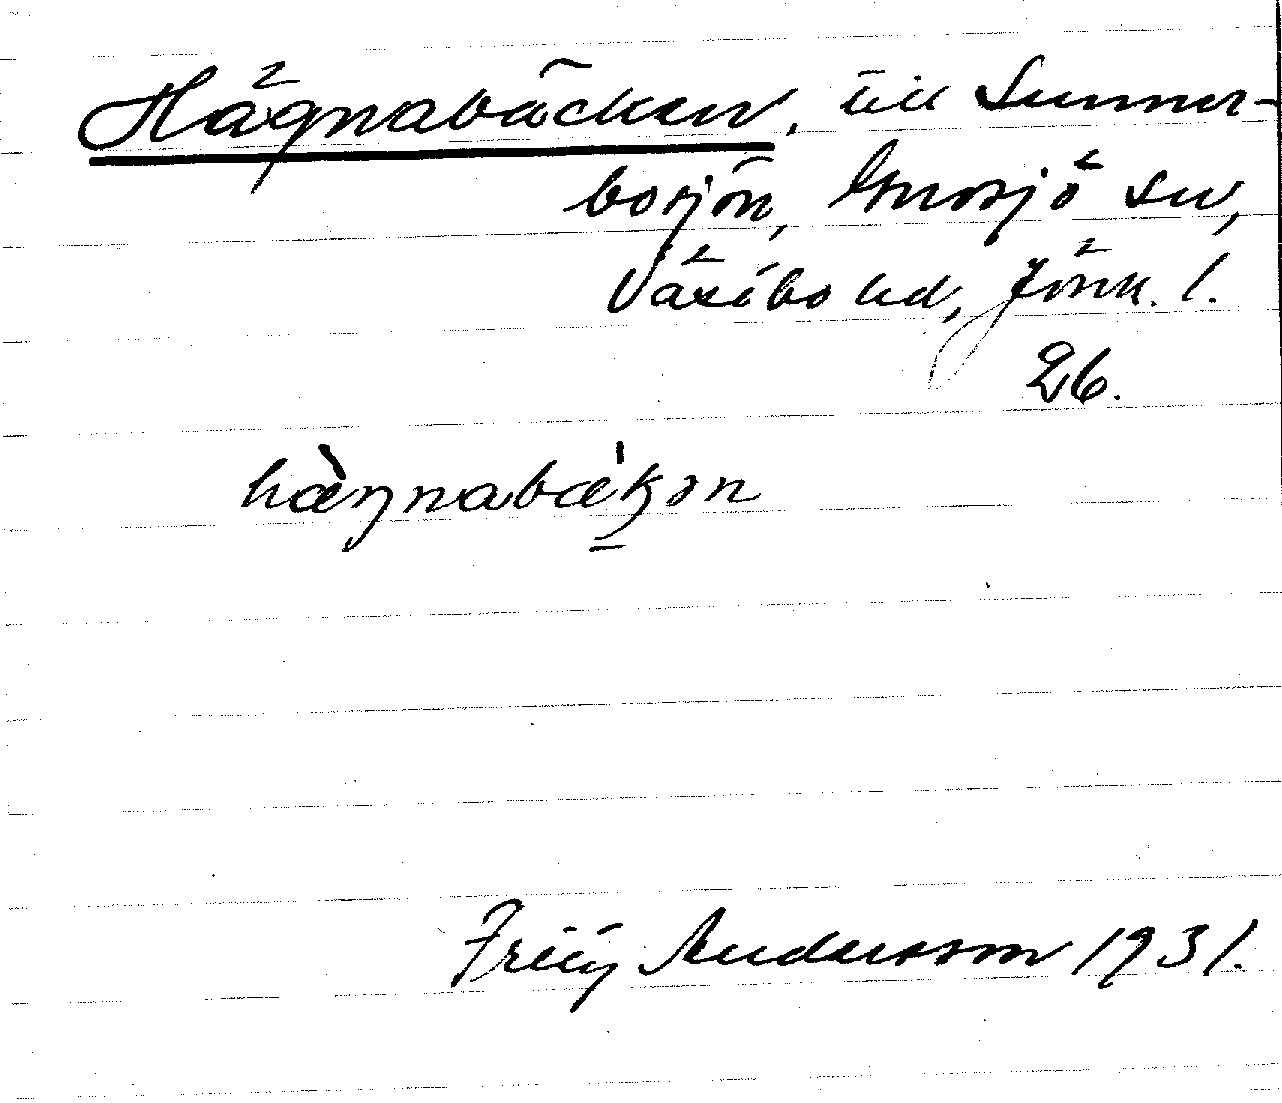 Hägnabäcken, till Sunner-
bosjön, Gnosjö sn,
Västbo hd, Jönk. l.
26.
hæ̀ŋnabæ̍kən
Fritiof Andersson 1931.